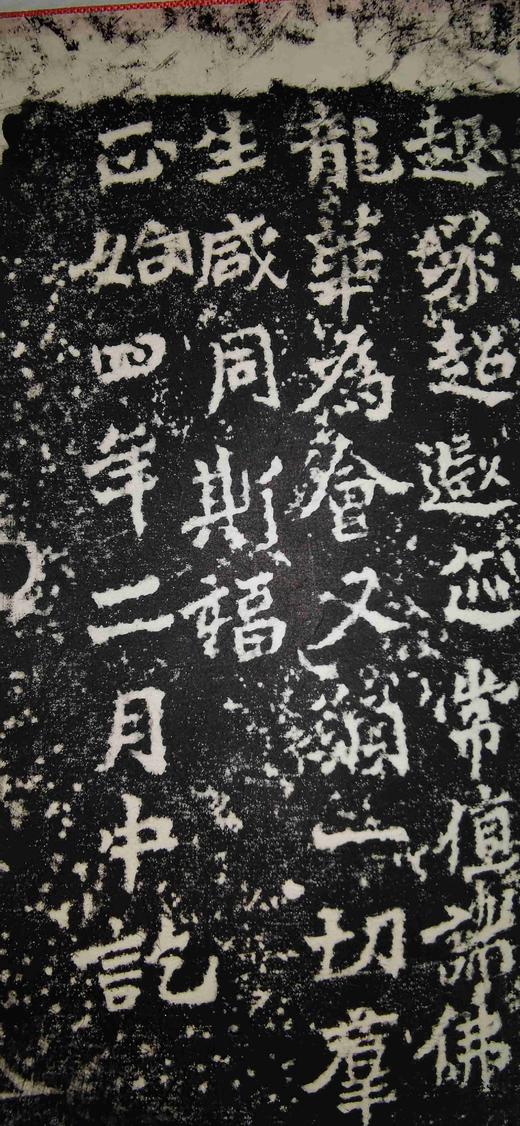 趣緣超遐迹常值諸佛
龍華為會又願一切羣
生咸同斯福
正始四年二月中訖